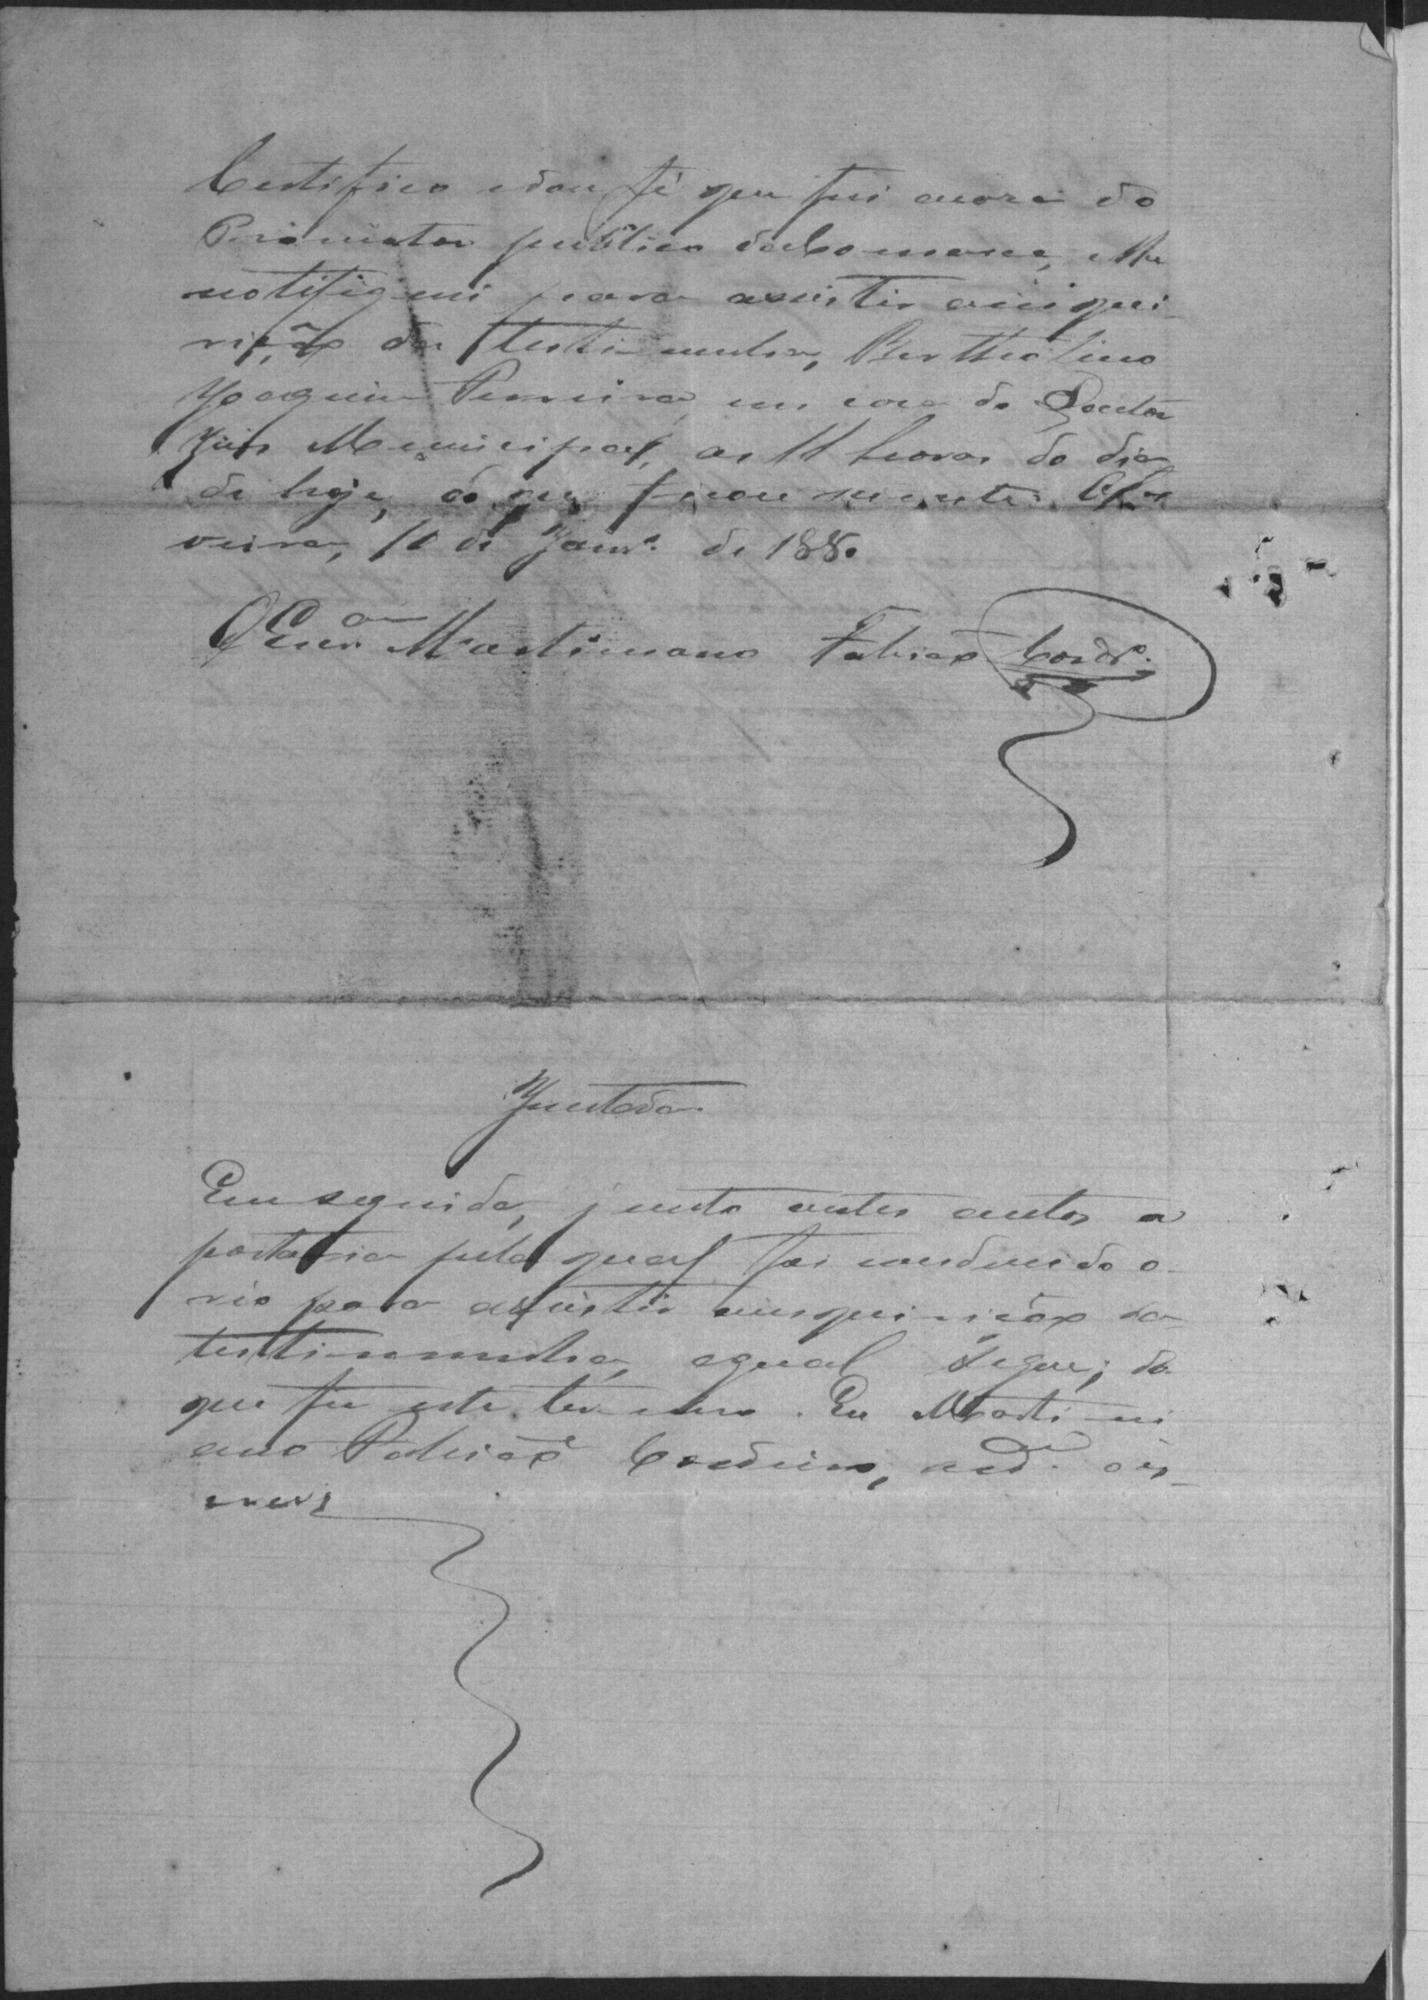 Certifico e dou fé que fui a casa do
Promotor publico da Comarca, e lhe
notifiquei para assistir a inqui-
rição da testimunha, Bertholino
Joaquim Pereira em casa do Doutor
Juis Municipal, as 11 horas do dia
de hoje, do que ficou sciente.
10 de Janr.º de 188
O Escr.am Martiniano Fabião Cordr.º
Juntada
Em seguida, junto a estes autos a
portaria pela qual foi conduzido o
réo para assistir a inquirição da
testimunha, a qual segue; do
que fiz este termo. Eu Martini
ano Fabião Cordeiro, o es-
crevi